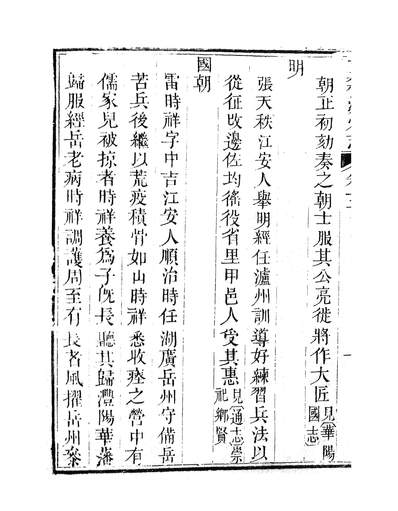 朝正初劾奏之朝士服其公亮徙將作大匠見華陽國志
明
張天秩江安人舉明經任瀘州訓導好練習兵法以
從征改邊佐均徭役省里甲邑人受其惠見通志崇祀鄉賢
國朝
雷時祥字中吉江安人順治時任湖廣岳州守備岳
苦兵後繼以荒疫積骨如山時祥悉收瘞之營中有
儒家兒被掠者時祥養爲子旣長聽其歸澧陽華藩
歸服經岳老病時祥調護周至有長者風擢岳州叅